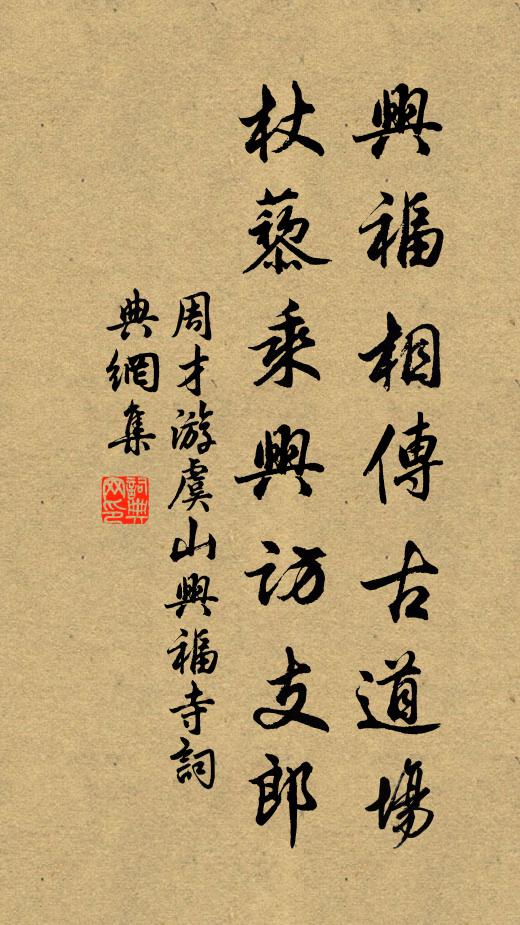 興福相傳古道場
杖藜乘興訪支郎
周才游虞山興福寺詞
典網集
詞典网印